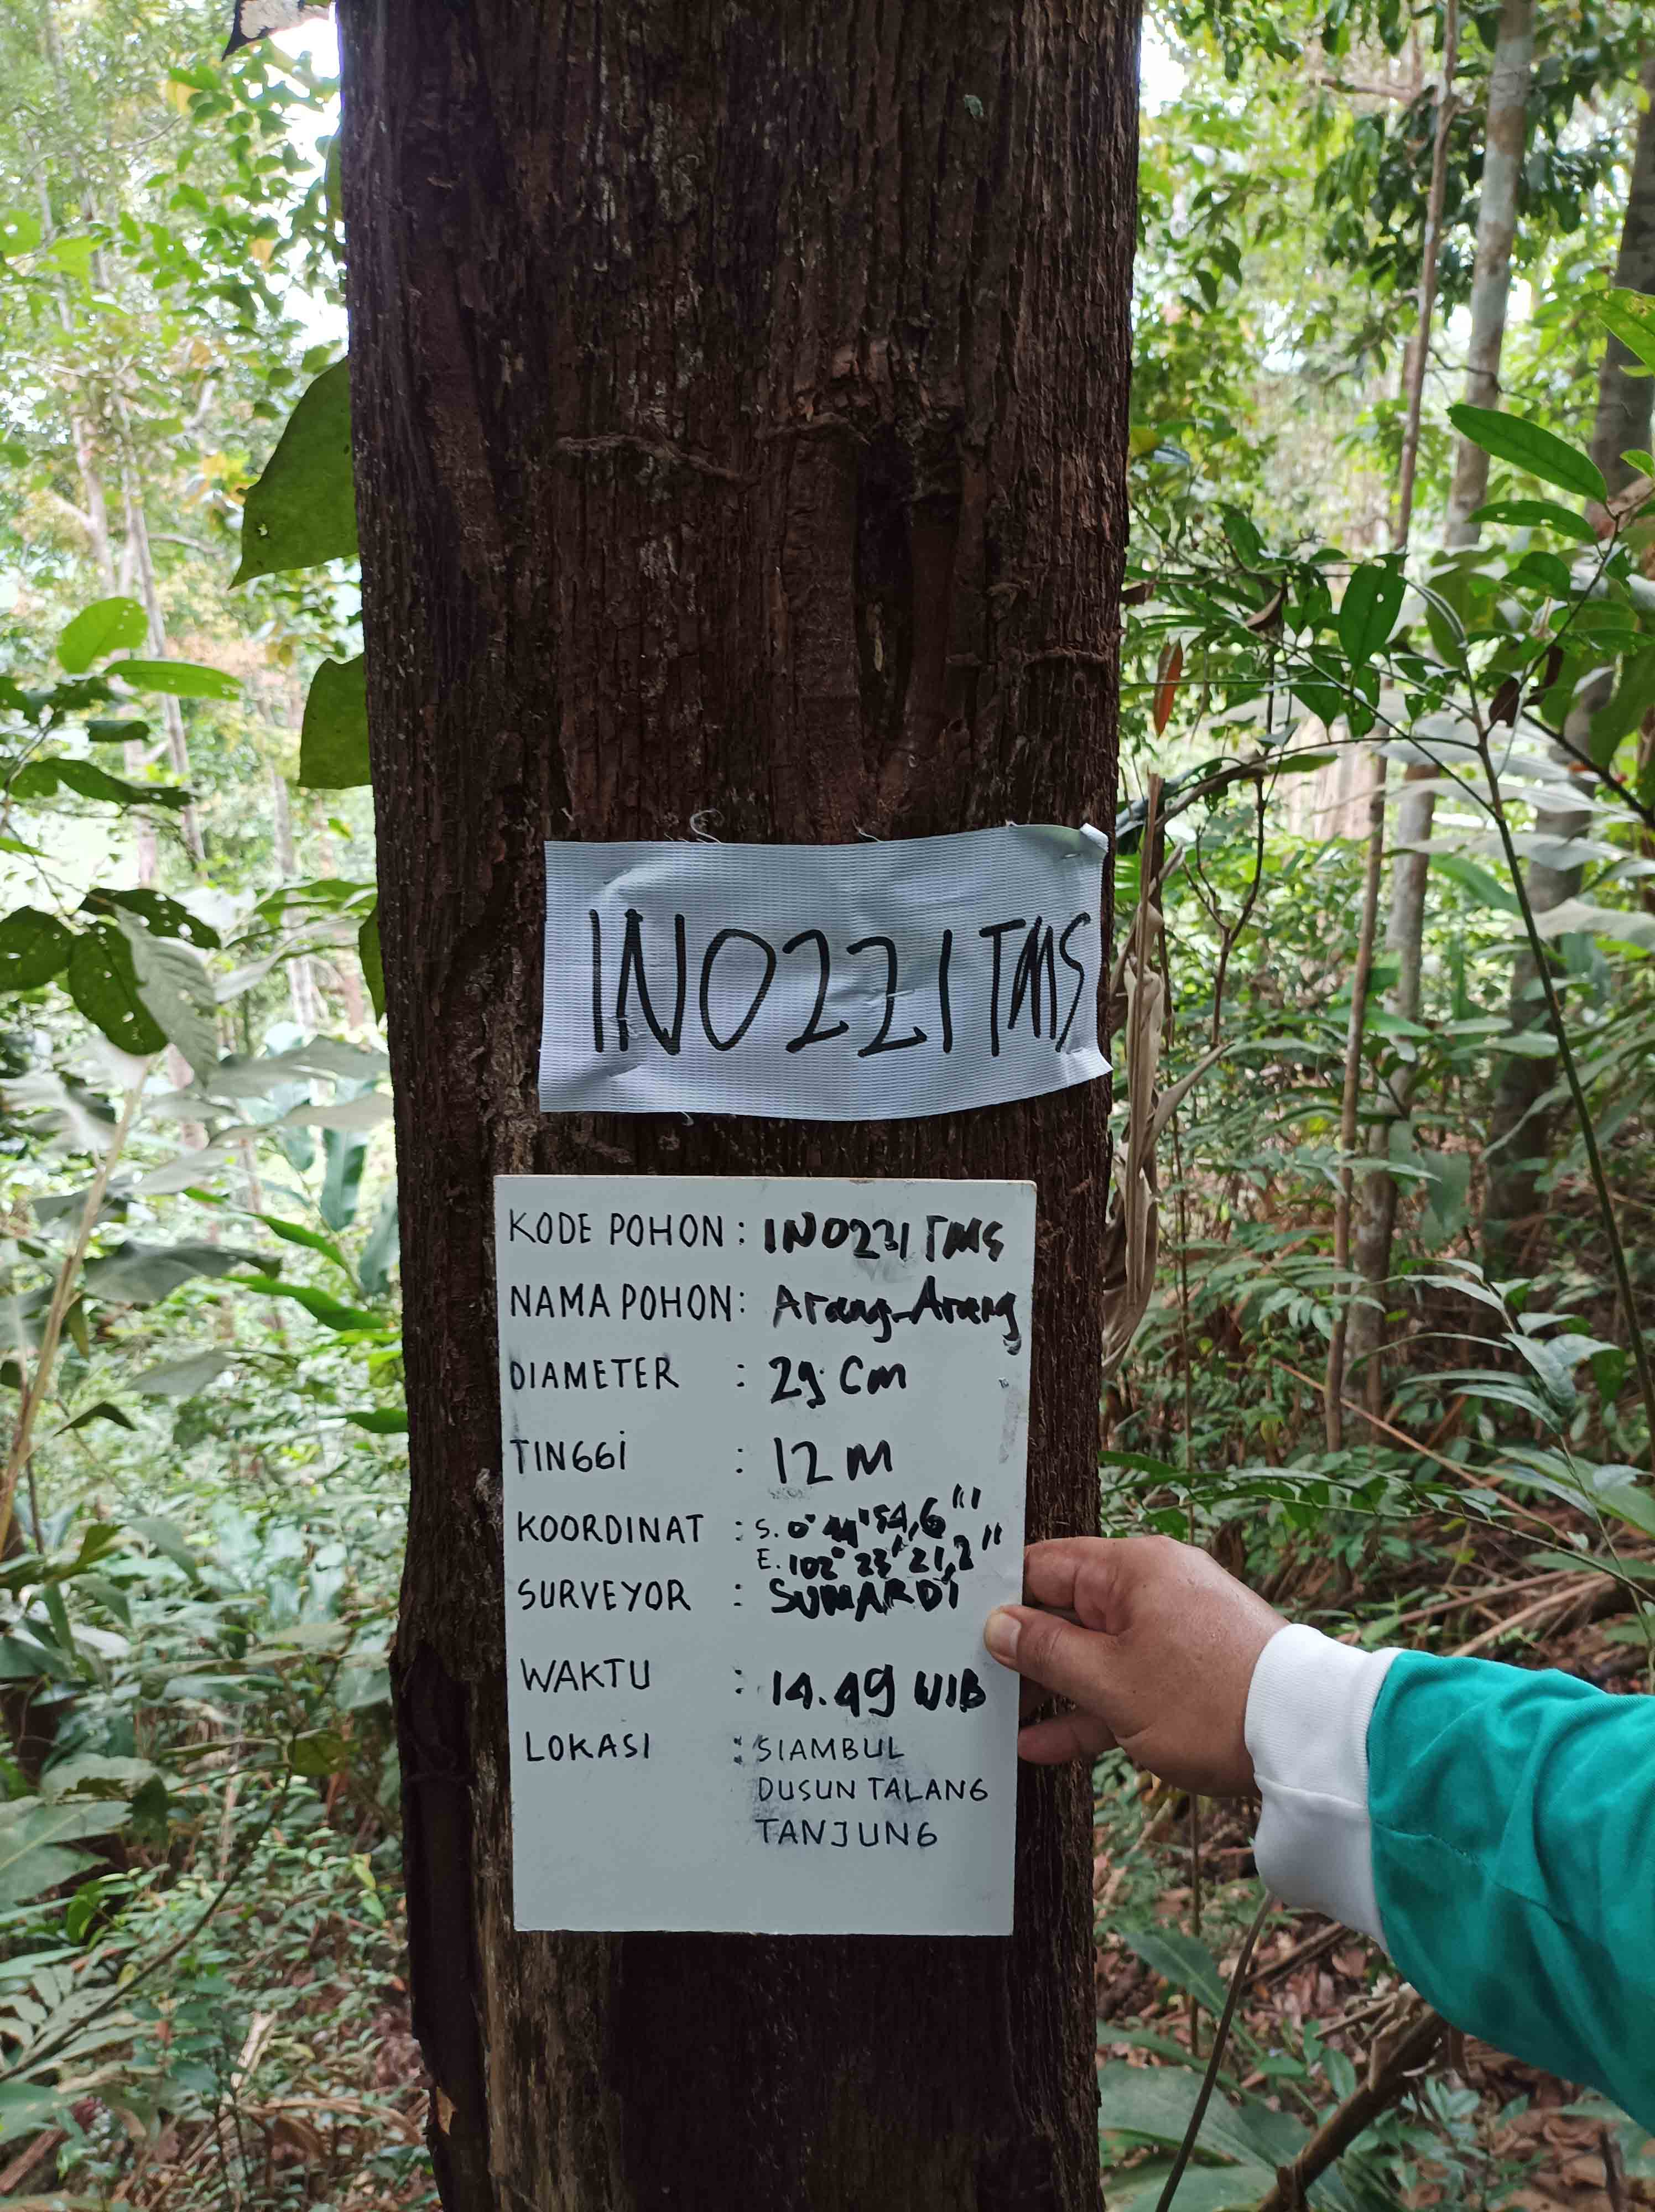 INO221TMS
KODE POHON : INO221 TMS
NAMA POHON : Arang-Arang
DIAMETER : 29 Cm
TINGGI : 12 M
KOORDINAT : S. 0° 44' 54,6"
E. 102° 23' 21,2"
SURVEYOR : SUMARDI
WAKTU : 14.49 WIB
LOKASI : SIAMBUL
DUSUN TALANG
TANJUNG